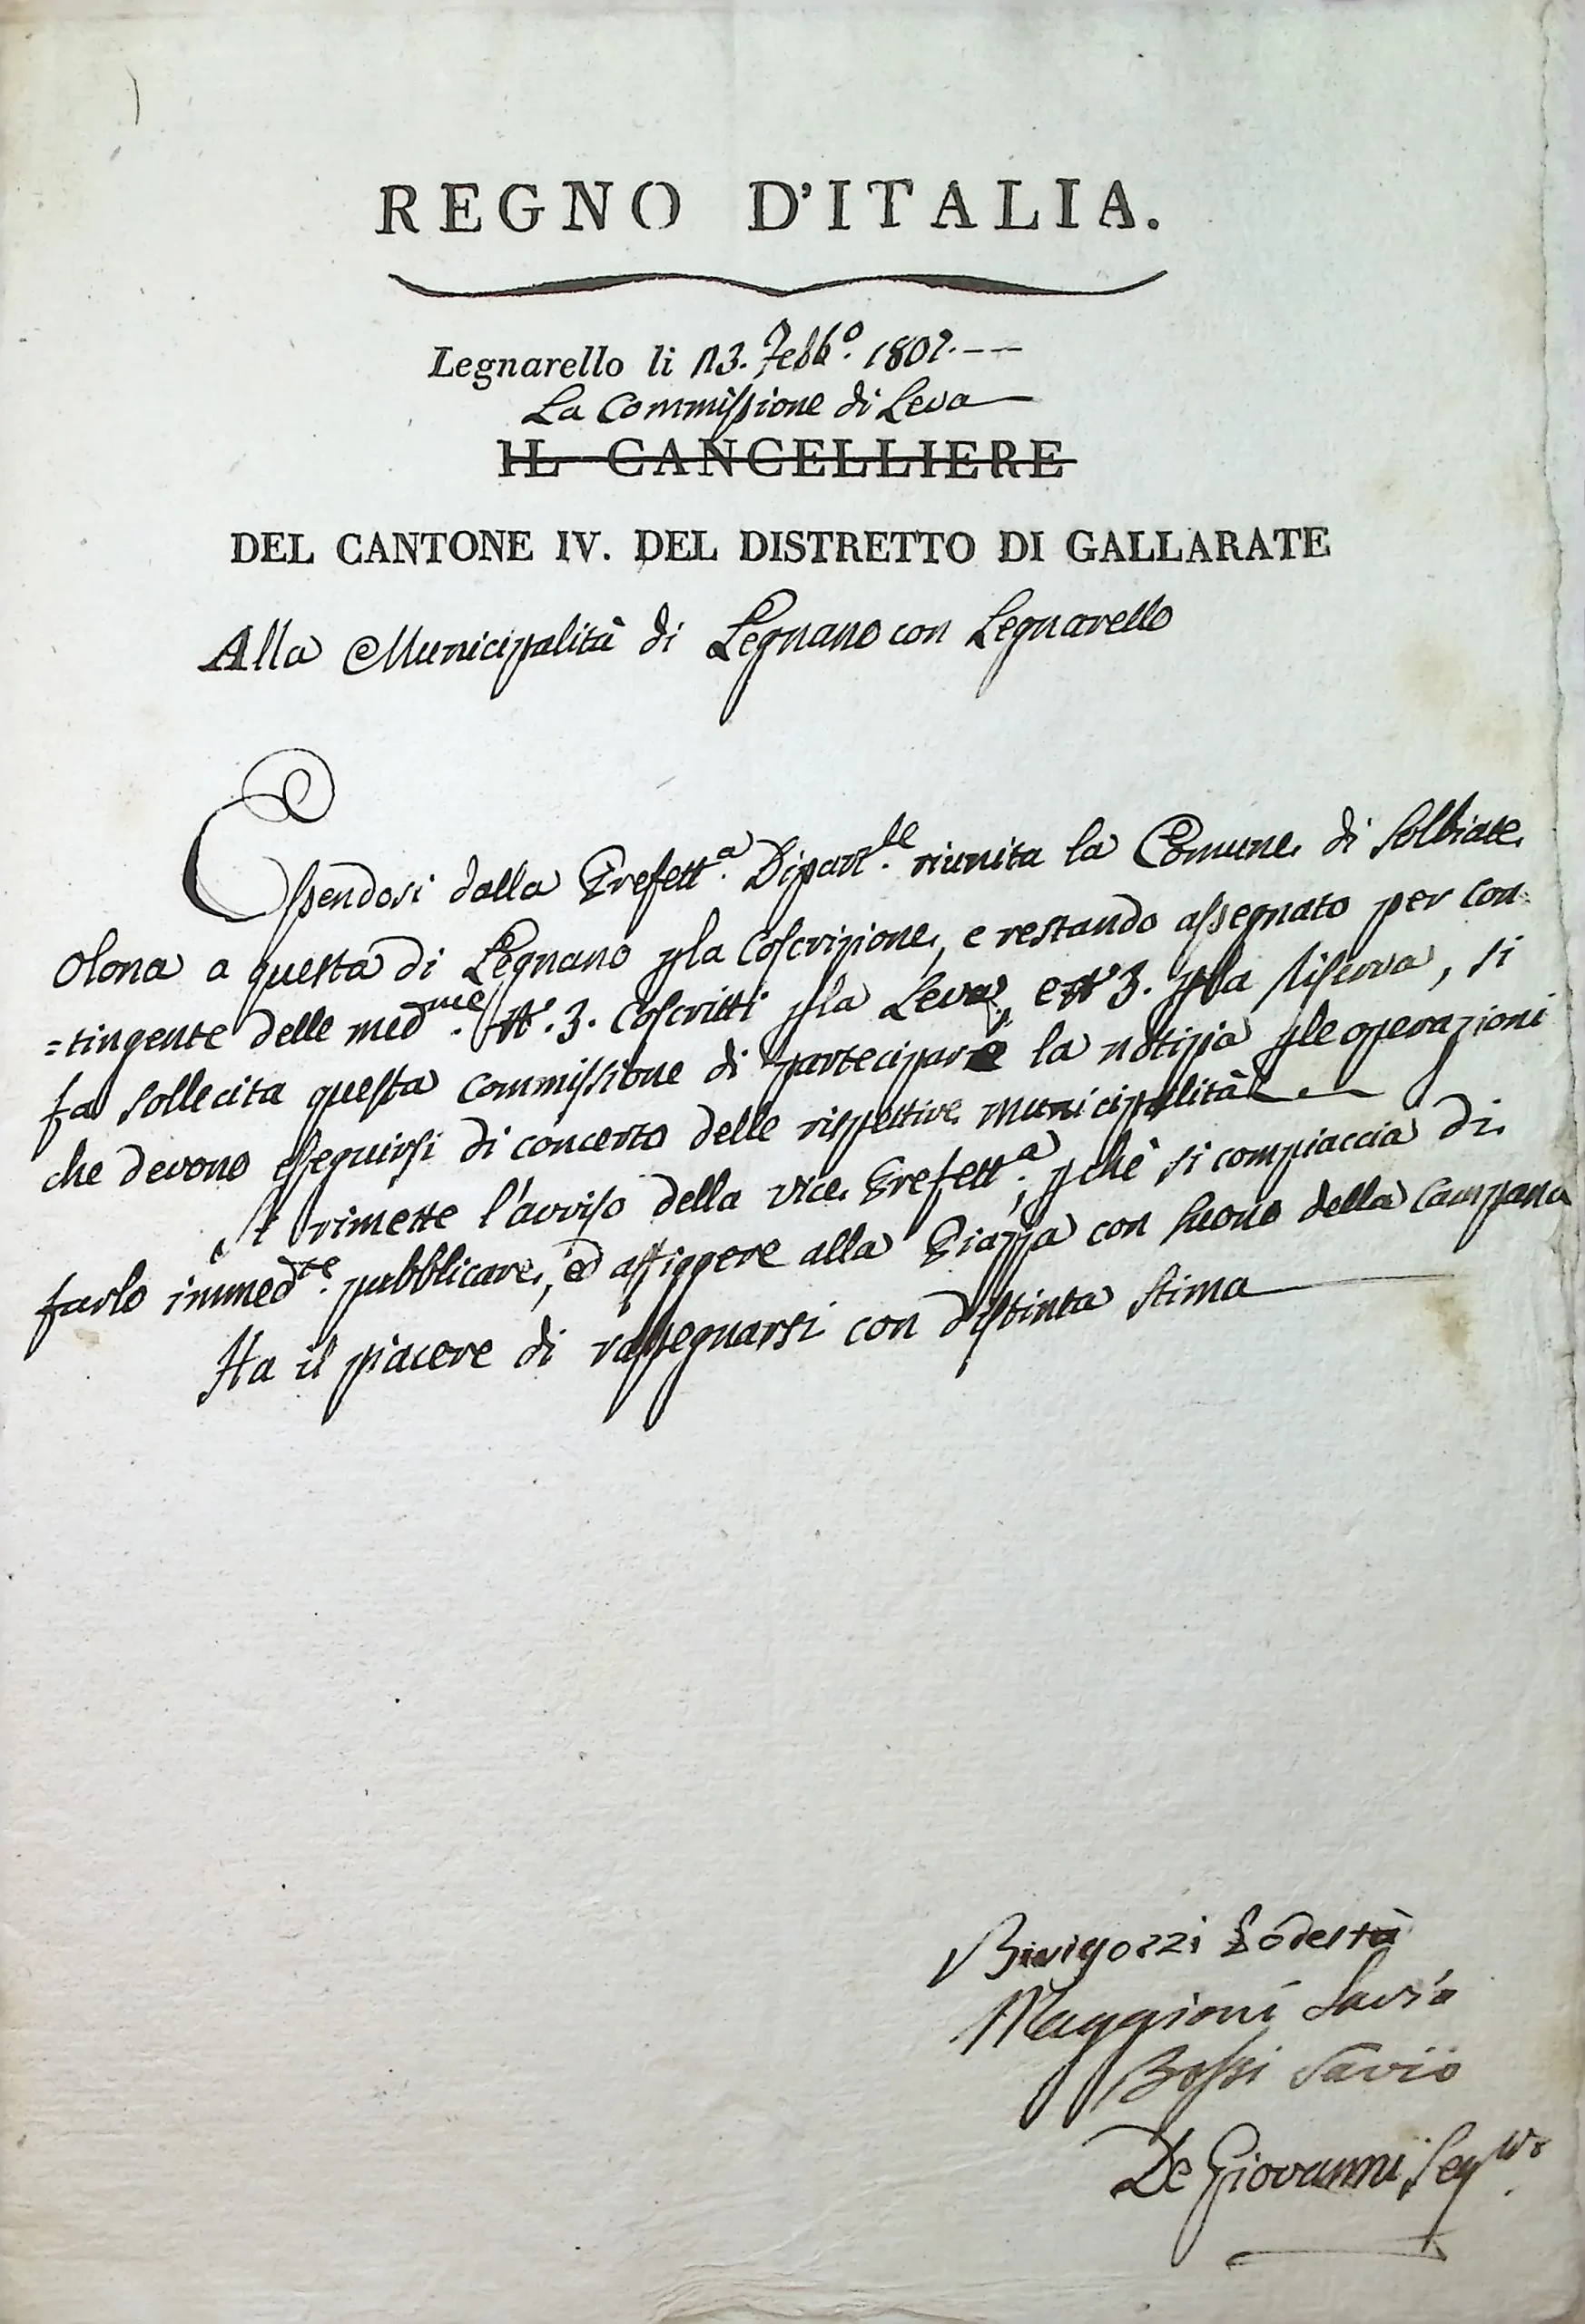 REGNO D'ITALIA.
Legnarello li 13. Febb.o 1807.
La Commissione di Leva
IL CANCELLIERE
DEL CANTONE IV. DEL DISTRETTO DI GALLARATE
Alla Municipalità di Legnano con Legnarello
Essendosi dalla Prefett.a Dipart.le riunita la Comune di Solbiate
Olona a questa di Legnano pla Coscrizione, e restando assegnato per con=
=tingente delle med.me N.° 3. Coscritti pla Leva, e N.° 3. pla riserva, si
fa sollecita questa Commissione di partecipare la notizia ple operazioni
che devono eseguirsi di concerto delle rispettive Municipalità
Si rimette l'avviso della Vice Prefett.a, pchè si compiaccia di
farlo immed.te pubblicare, ed affiggere alla Piazza con suono della Campana
Ha il piacere di rassegnarsi con distinta stima
Podestà
Maggioni Savio
Bossi Savio
De Giovanni Seg.rio